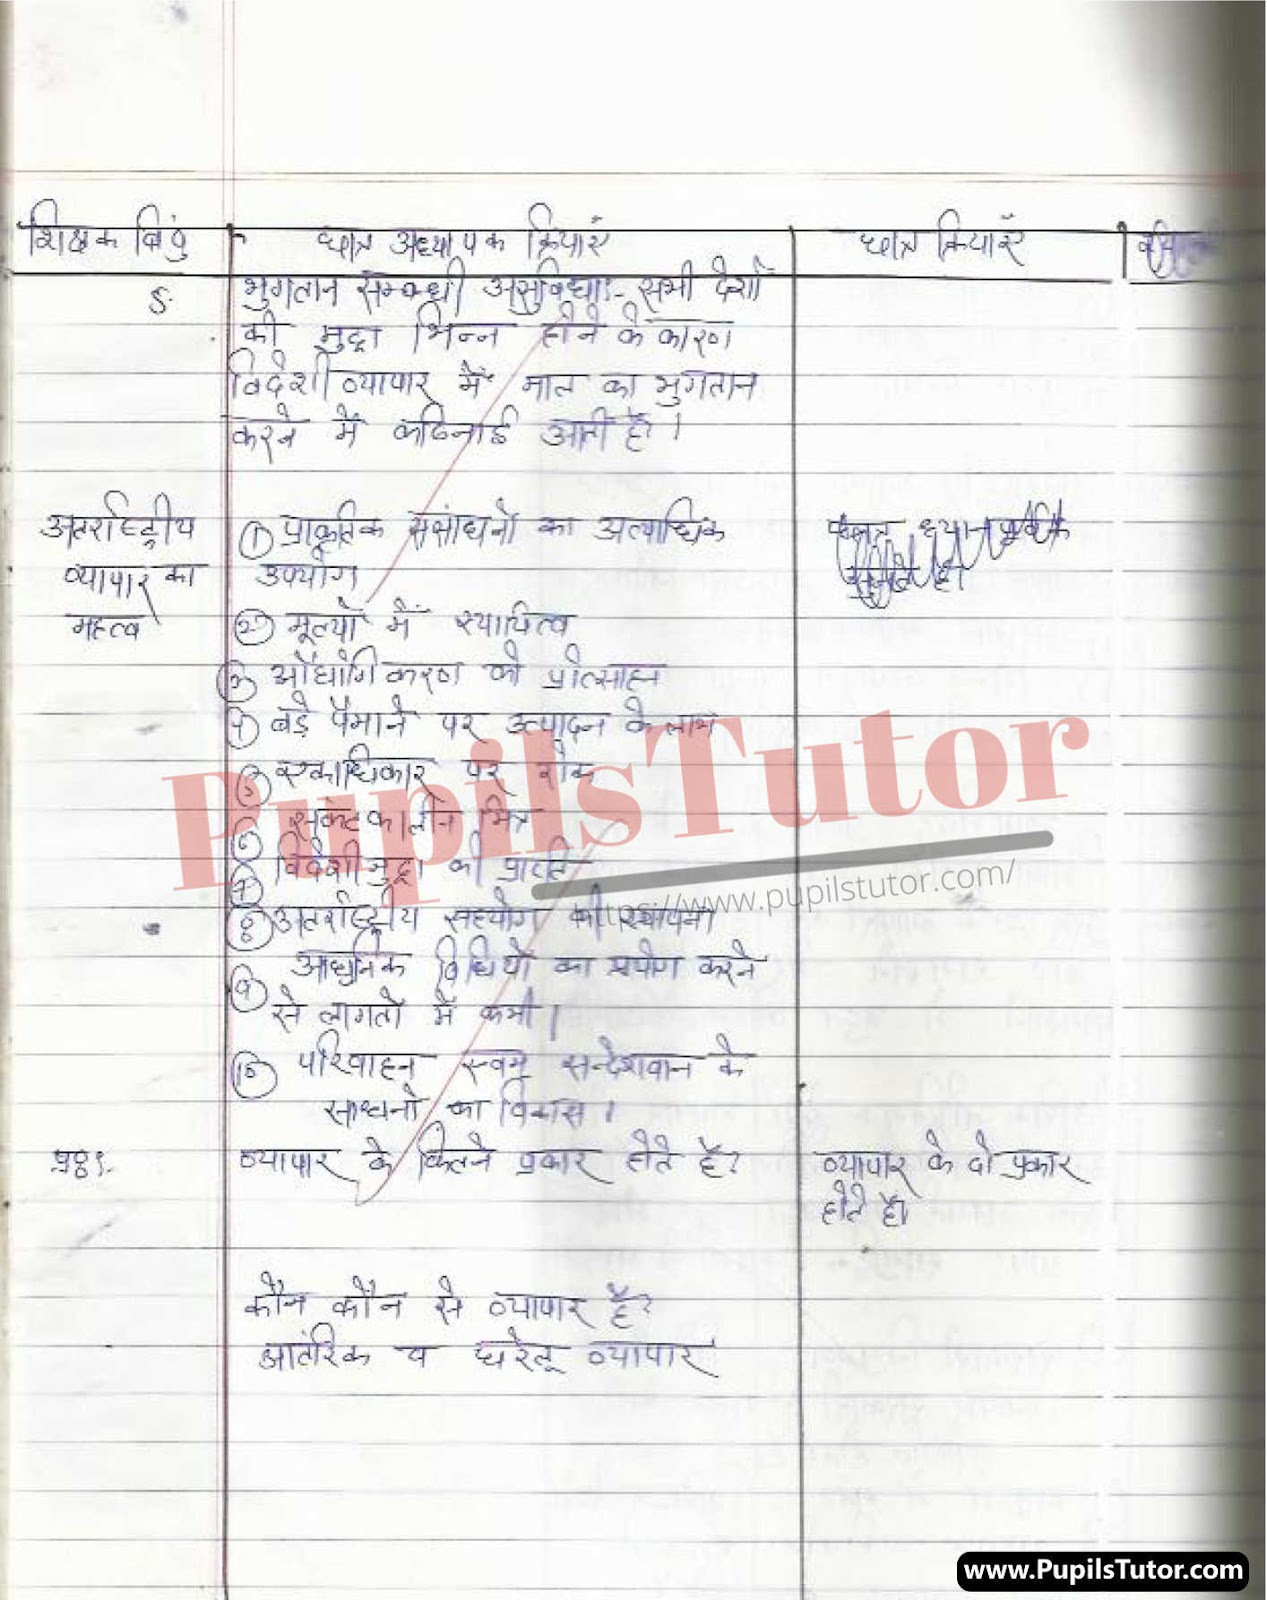 शिक्षक बिंदु
छात्र अध्यापक क्रियाएँ
छात्र क्रियाएँ
5.
भुगतान सम्बन्धी असुविधा:- सभी देशों
की मुद्रा भिन्न होने के कारण
विदेशी व्यापार में माल का भुगतान
करने में कठिनाई आती है।
अंतर्राष्ट्रीय
व्यापार का
महत्व
① प्राकृतिक संसाधनों का अत्याधिक
उपयोग
② मूल्यों में स्थायित्व
③ औद्योगिकरण को प्रोत्साहन
④ बड़े पैमाने पर उत्पादन के लाभ
⑤ एकाधिकार पर रोक
⑥ संकटकालीन मित्र
⑦ विदेशी मुद्रा की प्राप्ति
⑧ अंतर्राष्ट्रीय सहयोग की स्थापना
⑨ आधुनिक विधियों का प्रयोग करने
से लागतों में कमी।
⑩ परिवाहन एवम् सन्देशवान के
साधनों का विकास।
छात्र ध्यानपूर्वक
सुनते है।
PupilsTutor
https://www.pupilstutor.com/
व्यापार के कितने प्रकार होते है?
व्यापार के दो प्रकार
होते है।
कौन कौन से व्यापार है?
आतंरिक व घरेलू व्यापार
www.PupilsTutor.com